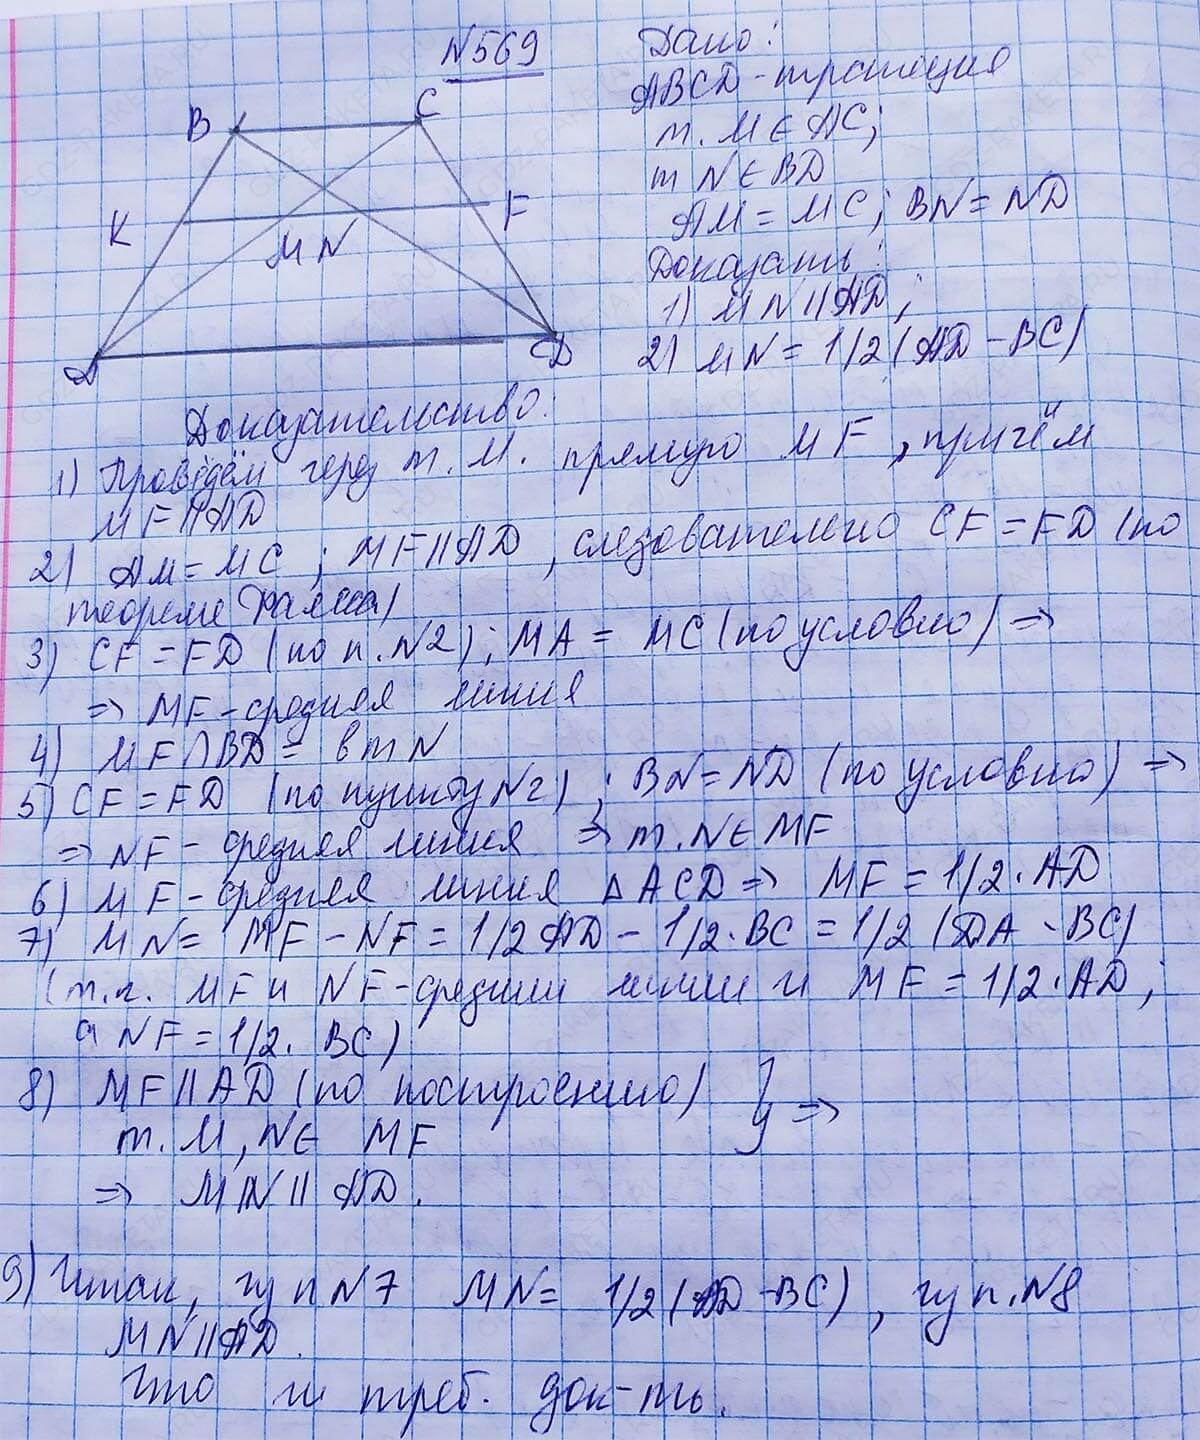 N569
Дано:
ABCD - трапеция
т. M ∈ AC;
т N ∈ BD
AM = MC; BN = ND
Доказать:
1) MN || AD;
2) MN = 1/2 (AD - BC)
B
C
K
F
M N
A
D
Доказательство:
1) Проведём через т. M. прямую MF, причём
MF || AD
2) AM = MC; MF || AD, следовательно CF = FD (по
теореме Фалеса)
3) CF = FD (по п. N2); MA = MC (по условию) =>
=> MF - средняя линия
4) MF ∩ BD = в т N
5) CF = FD (по пункту N2); BN = ND (по условию) =>
=> NF - средняя линия => т. N ∈ MF
6) MF - средняя линия Δ ACD => MF = 1/2 · AD
7) MN = MF - NF = 1/2 AD - 1/2 · BC = 1/2 (DA - BC)
(т.к. MF и NF - средние линии и MF = 1/2 · AD;
а NF = 1/2 · BC)
8) MF || AD (по построению) } =>
т. M, N ∈ MF
=> MN || AD.
9) Итак, из п N7 MN = 1/2 (AD - BC), из п. N8
MN || AD.
Что и треб. док-ть.